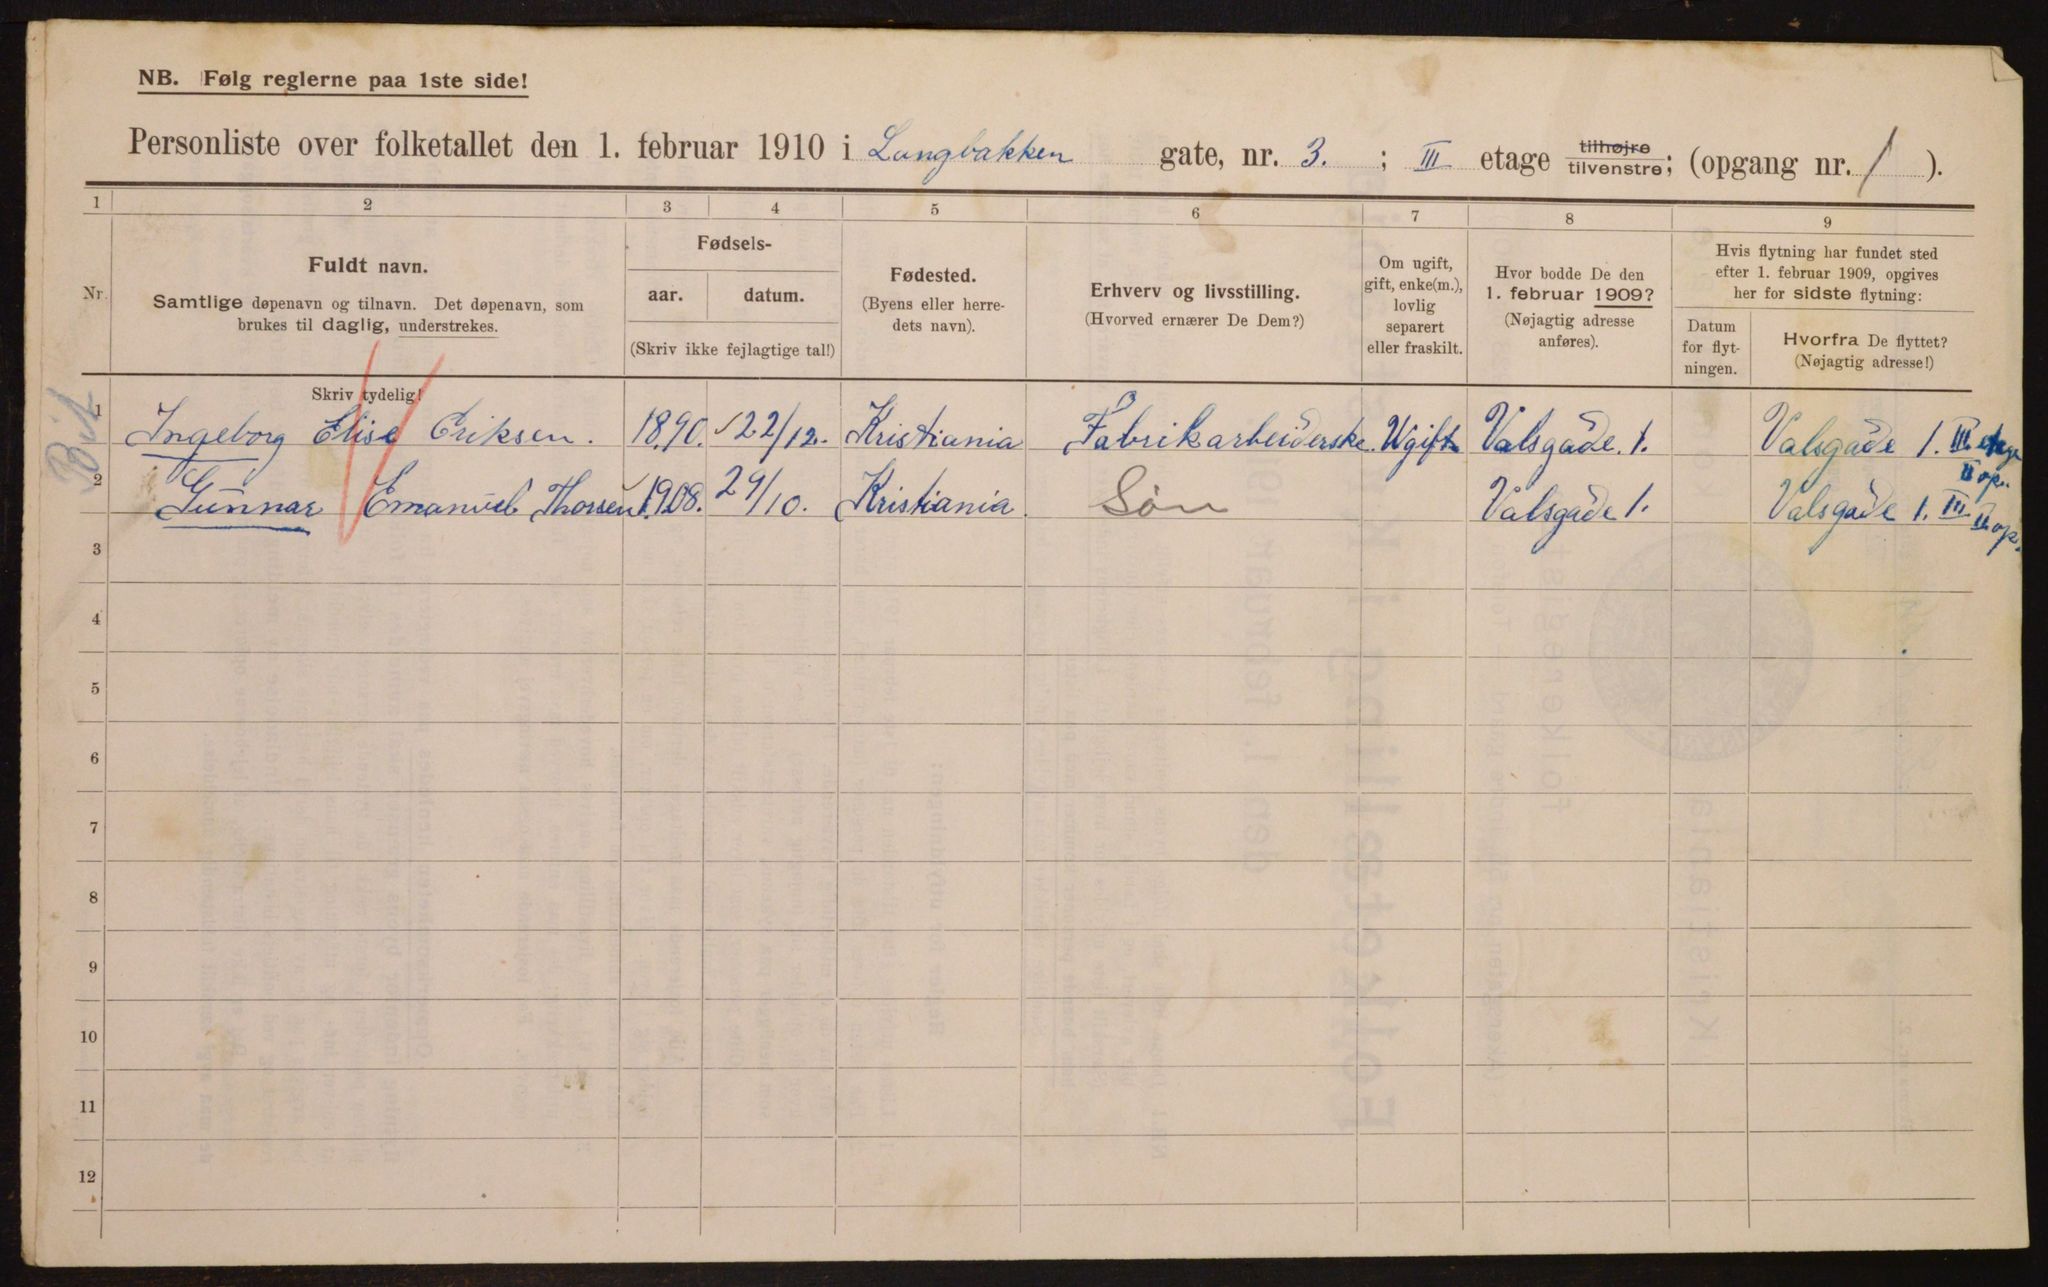 NB. Følg reglerne paa 1ste side!
Personliste over folketallet den 1. februar 1910 i Langbakken gate, nr. 3. ; III etage tilhøjre/tilvenstre; (opgang nr. 1 ).
1 2 3 4 5 6 7 8 9
Nr.
Fuldt navn.
Samtlige døpenavn og tilnavn. Det døpenavn, som
brukes til daglig, understrekes.
Skriv tydelig!
Fødsels-
aar. datum.
(Skriv ikke fejlagtige tal!)
Fødested.
(Byens eller herre-
dets navn).
Erhverv og livsstilling.
(Hvorved ernærer De Dem?)
Om ugift,
gift, enke(m.),
lovlig
separert
eller fraskilt.
Hvor bodde De den
1. februar 1909?
(Nøjagtig adresse
anføres).
Hvis flytning har fundet sted
efter 1. februar 1909, opgives
her for sidste flytning:
Datum
for flyt-
ningen.
Hvorfra De flyttet?
(Nøjagtig adresse!)
1 Ingeborg Elise Eriksen. 1890. 22/12. Kristiania Fabrikarbeiderske. Ugift Valsgade. 1. Valsgade 1. III etage II op.
2 Gunnar Emanuel Thorsen 1908. 29/10. Kristiania. Søn Valsgade 1. Valsgade 1. III II op.
3
4
5
6
7
8
9
10
11
12